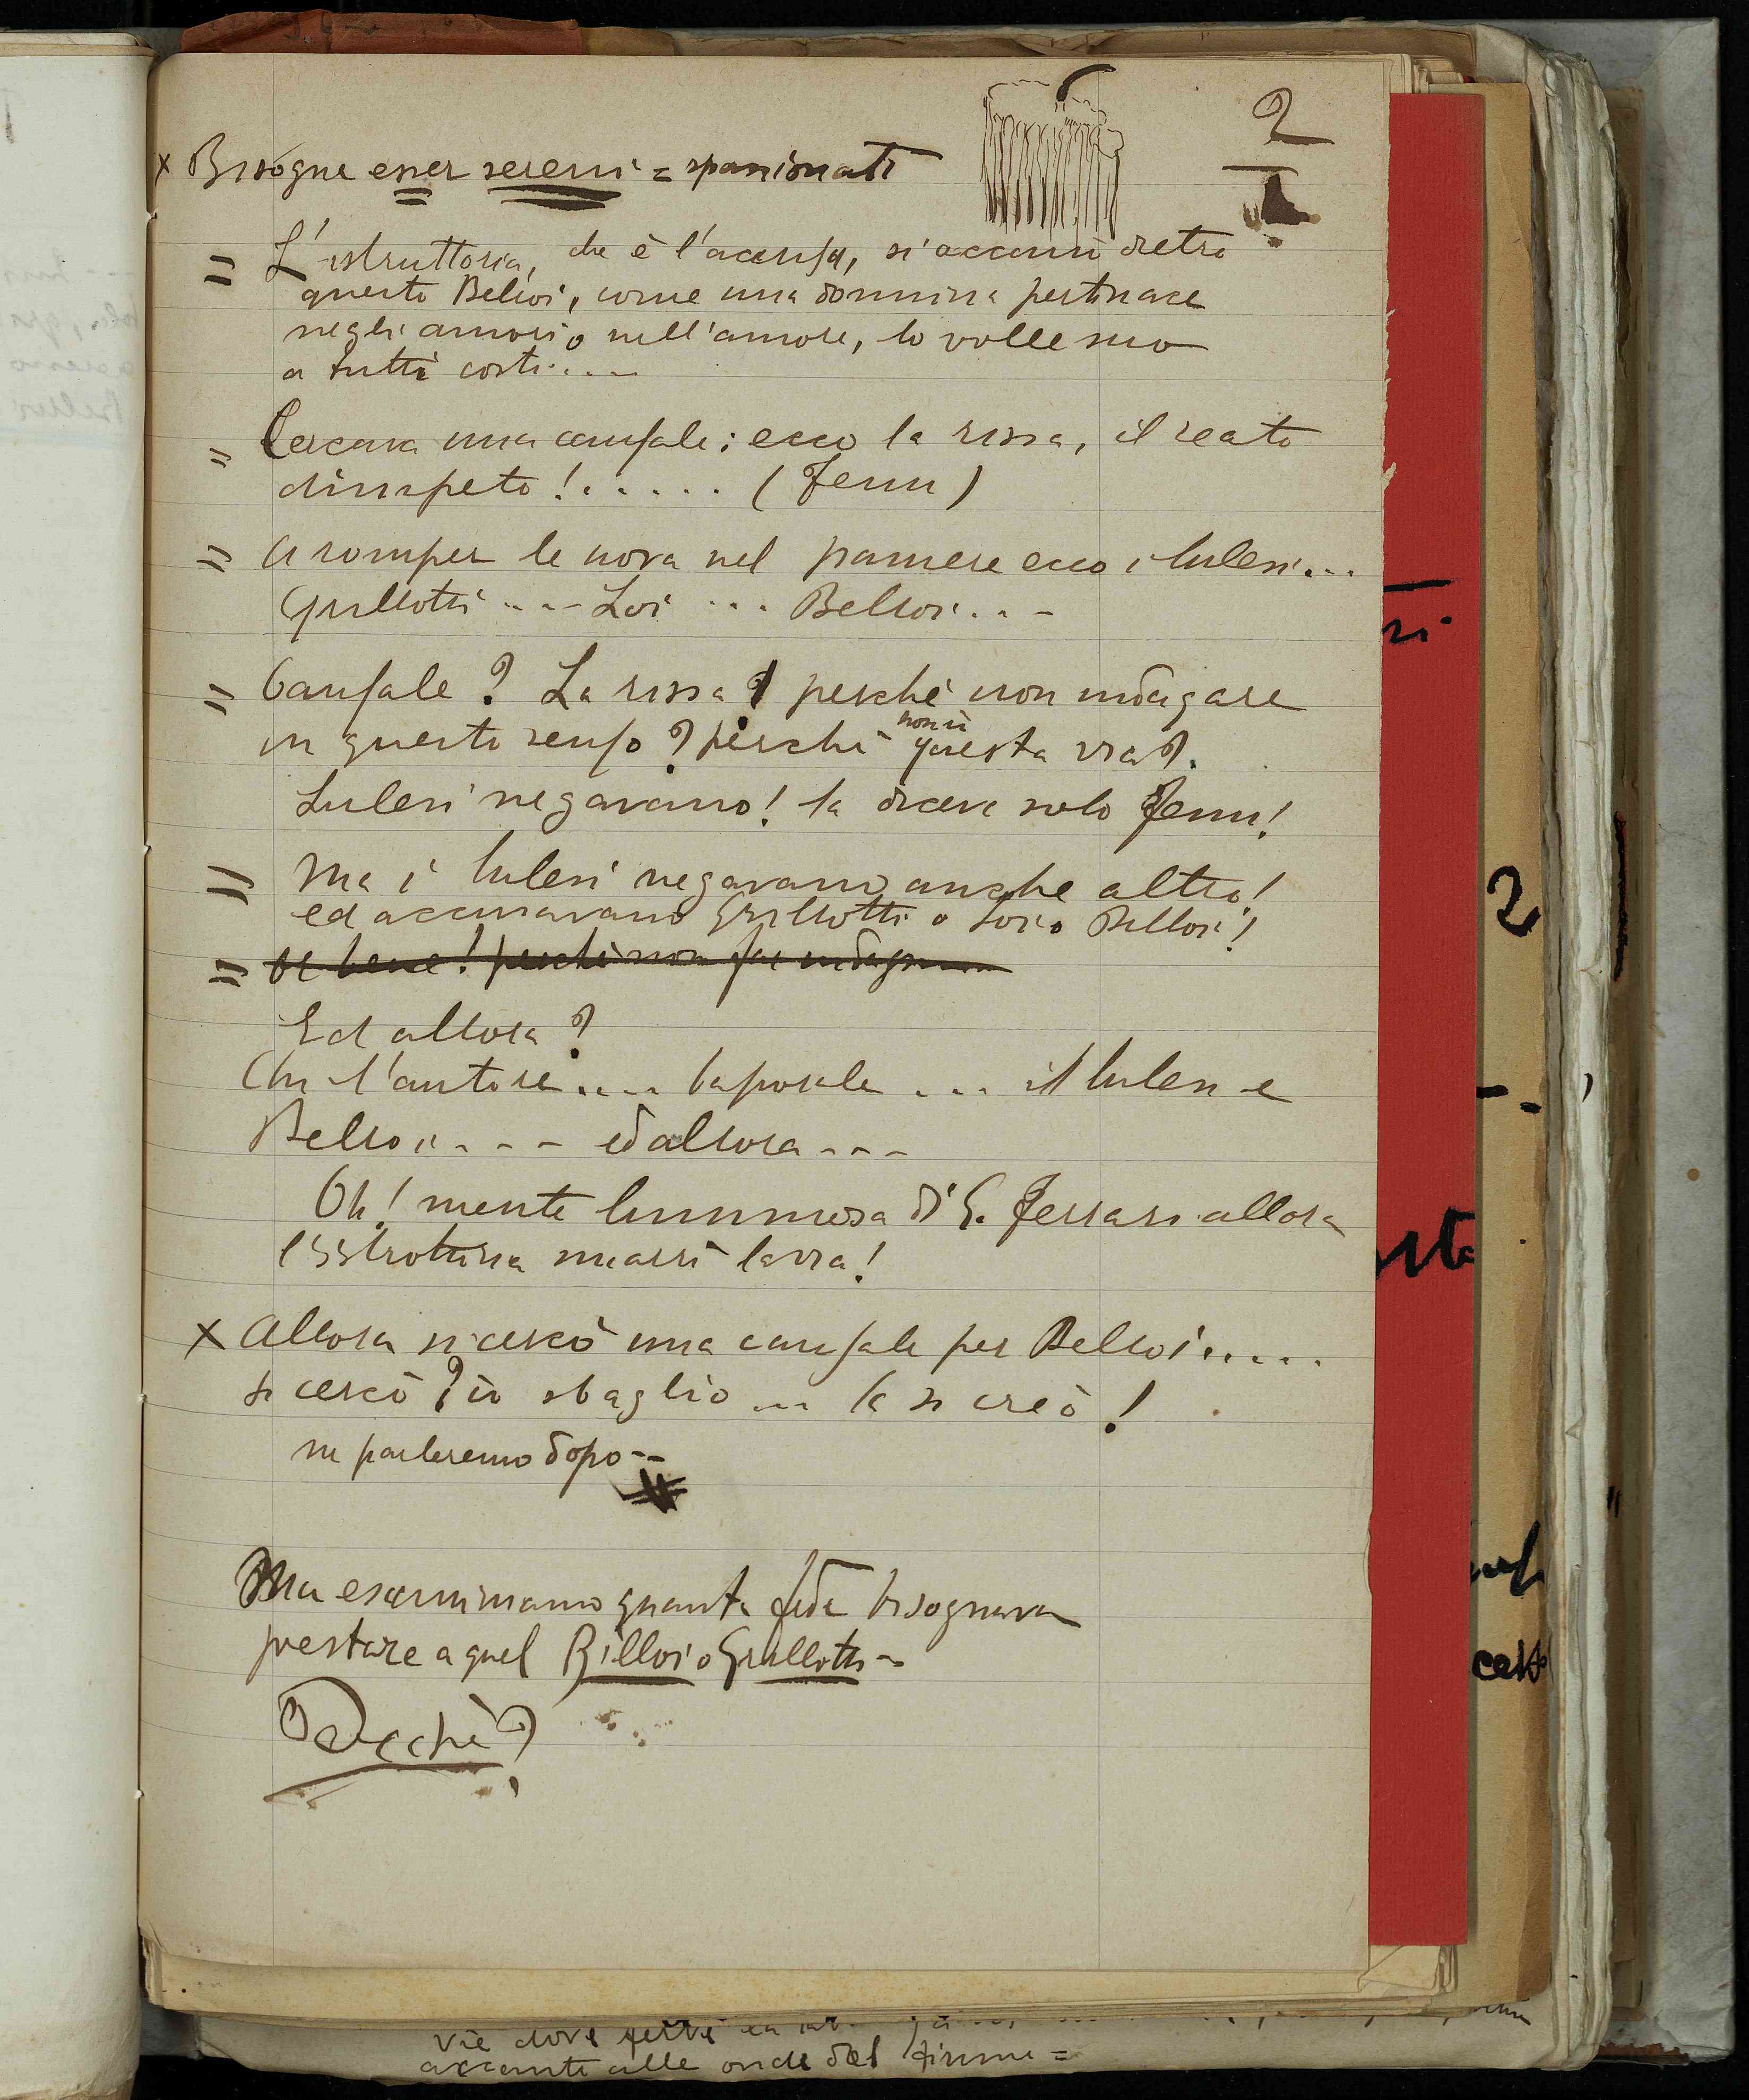 2
x Bisogna esser sereni = spassionati
= L'istruttoria, che è l'accusa, si accanì dietro
questo Belloi, come una donnina pertinace
negli amori o nell'amore, lo volle suo
a tutti costi....
= Cercava una causale: ecco la rissa, il reato
d'impeto!...... (Fenu)
= A romper le uova nel paniere ecco i lulesi...
Grillotti .... Loi ... Belloi...
= Causale? La rissa? perché non indagare
in questo senso? perché non si questa via?.
Lulesi negavano! la diceva solo Fenu!
= Ma i lulesi negavano anche altro!
ed accusavano Grillotti o Loi o Belloi!
= Ebbene! perché non
Ed allora?
Chi l'autore.... Caporale .... il lulese
Belloi.... ed allora---
Oh! mente luminosa di G. Ferrari allora
l'istruttoria smarrì la via!
x Allora si cercò una causale per Belloi.....
si cercò? io sbaglio ... la si creò!
ne parleremo dopo--
Ma esaminiamo quanta fede bisognava
prestare a quel Billoi o Grillotti-
Perchè?
2
accanto alle onde del fiume =